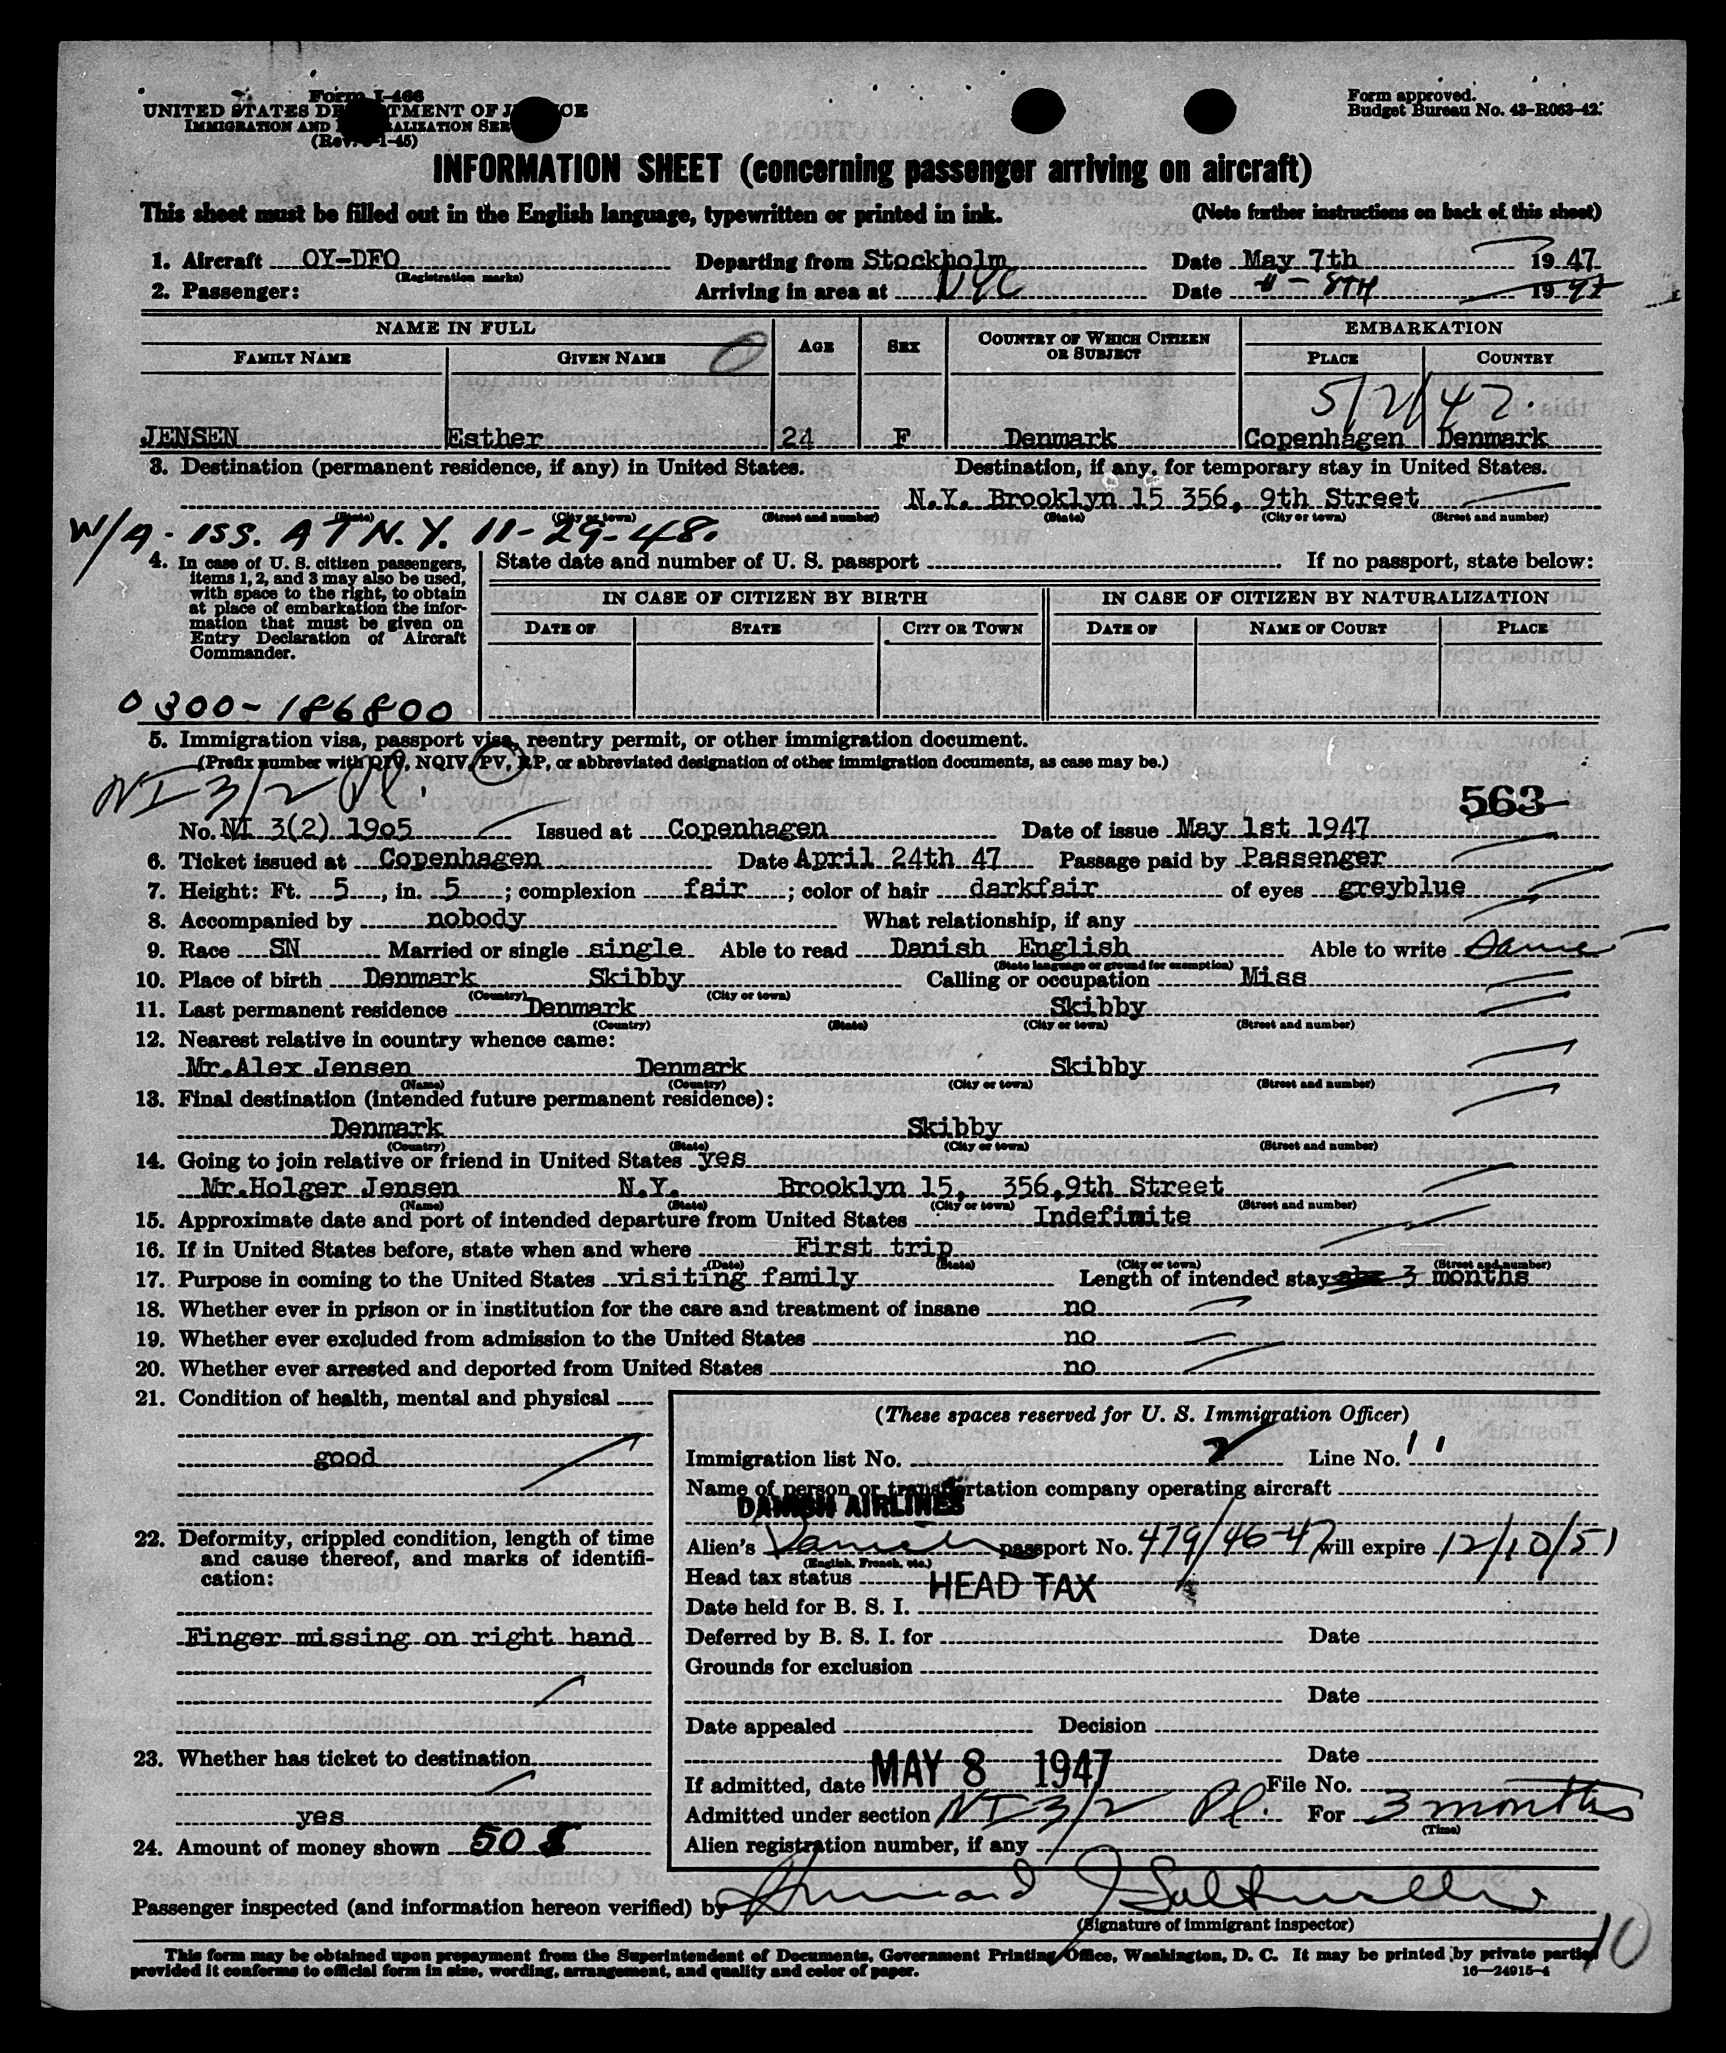 Form I-466
UNITED STATES DEPARTMENT OF JUSTICE
IMMIGRATION AND NATURALIZATION SERVICE
(Rev. 1-45)
Form approved.
Budget Bureau No. 43-R063-42.
INFORMATION SHEET (concerning passenger arriving on aircraft)
This sheet must be filled out in the English language, typewritten or printed in ink. (Note further instructions on back of this sheet)
1. Aircraft OY-DFO Departing from Stockholm Date May 7th 1947
(Registration marks)
2. Passenger: Arriving in area at NYC Date " - 8TH 1947
NAME IN FULL AGE SEX COUNTRY OF WHICH CITIZEN OR SUBJECT EMBARKATION
FAMILY NAME GIVEN NAME PLACE COUNTRY
5/2/47.
JENSEN Esther 24 F Denmark Copenhagen Denmark
3. Destination (permanent residence, if any) in United States. Destination, if any, for temporary stay in United States.
N.Y. Brooklyn 15 356, 9th Street
(State) (City or town) (Street and number) (State) (City or town) (Street and number)
W/A - ISS. AT N.Y. 11-29-48.
4. In case of U. S. citizen passengers, items 1, 2, and 3 may also be used, with space to the right, to obtain at place of embarkation the information that must be given on Entry Declaration of Aircraft Commander.
State date and number of U. S. passport If no passport, state below:
IN CASE OF CITIZEN BY BIRTH IN CASE OF CITIZEN BY NATURALIZATION
DATE OF STATE CITY OR TOWN DATE OF NAME OF COURT PLACE
0300-186800
5. Immigration visa, passport visa, reentry permit, or other immigration document.
(Prefix number with QIV, NQIV, PV, RP, or abbreviated designation of other immigration documents, as case may be.)
NI 3/2 Pl.
563
No. NI 3(2) 1905 Issued at Copenhagen Date of issue May 1st 1947
6. Ticket issued at Copenhagen Date April 24th 47 Passage paid by Passenger
7. Height: Ft. 5, in. 5; complexion fair; color of hair darkfair of eyes greyblue
8. Accompanied by nobody What relationship, if any
9. Race SN Married or single single Able to read Danish English Able to write Same
(State language or ground for exemption)
10. Place of birth Denmark Skibby Calling or occupation Miss
(Country) (City or town)
11. Last permanent residence Denmark Skibby
(Country) (State) (City or town) (Street and number)
12. Nearest relative in country whence came:
Mr.Alex Jensen Denmark Skibby
(Name) (Country) (City or town) (Street and number)
13. Final destination (intended future permanent residence):
Denmark Skibby
(Country) (State) (City or town) (Street and number)
14. Going to join relative or friend in United States yes
Mr.Holger Jensen N.Y. Brooklyn 15, 356,9th Street
(Name) (State) (City or town) (Street and number)
15. Approximate date and port of intended departure from United States Indefinite
16. If in United States before, state when and where First trip
(Date) (State) (City or town) (Street and number)
17. Purpose in coming to the United States visiting family Length of intended stay 3 months
18. Whether ever in prison or in institution for the care and treatment of insane no
19. Whether ever excluded from admission to the United States no
20. Whether ever arrested and deported from United States no
21. Condition of health, mental and physical
good
22. Deformity, crippled condition, length of time and cause thereof, and marks of identification:
Finger missing on right hand
23. Whether has ticket to destination
yes
24. Amount of money shown 50 $
(These spaces reserved for U. S. Immigration Officer)
Immigration list No. 2 Line No. 11
Name of person or transportation company operating aircraft
DANISH AIRLINES
Alien's Danish passport No. 479/46-47 will expire 12/10/51
(English, French, etc.)
Head tax status HEAD TAX
Date held for B. S. I.
Deferred by B. S. I. for Date
Grounds for exclusion
Date
Date appealed Decision
Date
If admitted, date MAY 8 1947 File No.
Admitted under section NI 3/2 Pl. For 3 months
(Time)
Alien registration number, if any
Passenger inspected (and information hereon verified) by
(Signature of immigrant inspector)
10
This form may be obtained upon prepayment from the Superintendent of Documents, Government Printing Office, Washington, D. C. It may be printed by private parties
provided it conforms to official form in size, wording, arrangement, and quality and color of paper.
16—24915-4